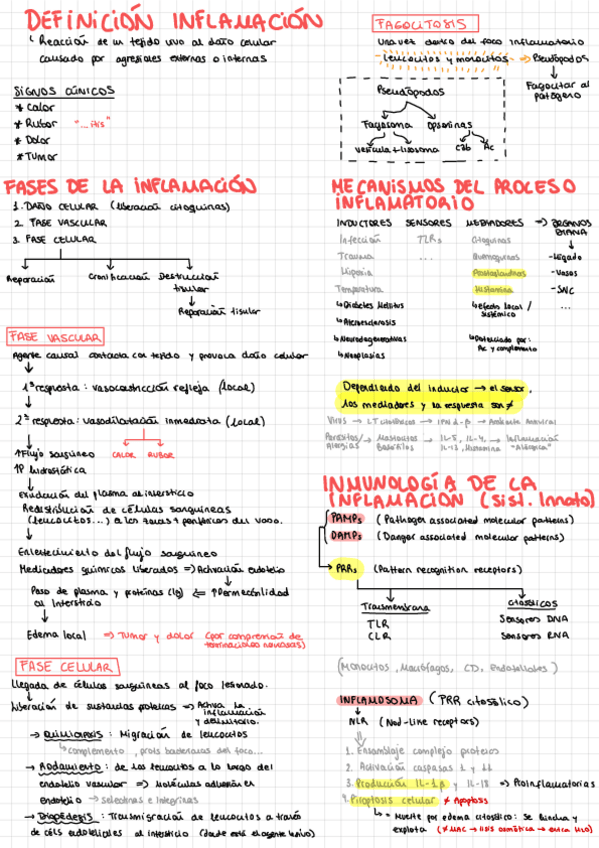 DEFINICIÓN INFLAMACIÓN
↳ Reacción de un tejido vivo al daño celular
causado por agresiones externas o internas
SIGNOS CLÍNICOS
* Calor
* Rubor "...itis"
* Dolor
* Tumor
FASES DE LA INFLAMACIÓN
1. DAÑO CELULAR (liberación citoquinas)
2. FASE VASCULAR
3. FASE CELULAR
Reparación Cronificación Destrucción
tisular
Reparación tisular
FASE VASCULAR
Agente causal contacta con tejido y provoca daño celular
1ª respuesta: vasoconstricción refleja (local)
2ª respuesta: vasodilatación inmediata (local)
↑Flujo sanguíneo CALOR RUBOR
↑P hidrostática
Exudación del plasma al intersticio
Redistribución de células sanguíneas
(leucocitos...) a las zonas + periféricas del vaso.
Enlentecimiento del flujo sanguíneo
Mediadores químicos liberados => Activación endotelio
Paso de plasma y proteínas (Ig) <= ↑Permeabilidad
al intersticio
Edema local => Tumor y dolor (por compresión de
terminaciones nerviosas)
FASE CELULAR
Llegada de células sanguíneas al foco lesionado.
Liberación de sustancias proteicas => Activa la
inflamación
y delimitarlo.
→ Quimiotaxis: Migración de leucocitos
↳ complemento, prots bacterianas del foco...
→ Rodamiento: de los leucocitos a lo largo del
endotelio vascular => Moléculas adhesión en
Endotelio → selectinas e integrinas
→ Diapédesis: Transmigración de leucocitos a través
de céls endoteliales al intersticio (donde está el agente lesivo)
FAGOCITOSIS
Una vez dentro del foco inflamatorio
leucocitos y monocitos → Pseudópodos
Fagocitar al
patógeno
Pseudópodos
Fagosoma Opsoninas
vesícula + lisosoma C3b Ac
MECANISMOS DEL PROCESO
INFLAMATORIO
INDUCTORES SENSORES MEDIADORES => ÓRGANOS
DIANA
Infección TLRs Citoquinas
Trauma ... Quimioquinas - Hígado
Hipoxia Prostaglandinas - Vasos
Temperatura Histamina - SNC
↳ Diabetes Mellitus ↳ efecto local / ...
sistémico
↳ Aterosclerosis
↳ Neurodegenerativas ↳ Potenciado por:
Ac y complemento
↳ Neoplasias
Dependiendo del inductor → el sensor,
los mediadores y la respuesta son ≠
Virus → LT citotóxicos → IFN α-β → Ambiente Antiviral
Parásitos/ → Mastocitos → IL-5, IL-4, → Inflamación
Alergias Basófilos IL-13, Histamina "Alérgica"
INMUNOLOGÍA DE LA
INFLAMACIÓN (Sist. Innato)
PAMPs (Pathogen associated molecular patterns)
DAMPs (Danger associated molecular patterns)
→ PRRs (Pattern recognition receptors)
Transmembrana Citosólicos
TLR Sensores DNA
CLR Sensores RNA
(Monocitos, Macrófagos, CD, Endoteliales)
INFLAMOSOMA (PRR citosólico)
NLR (Nod-like receptors)
1. Ensamblaje complejo proteico
2. Activación caspasas 1 y 11
3. Producción IL-1β y IL-18 => Proinflamatorias
4. Piroptosis celular ≠ Apoptosis
↳ = Muerte por edema citosólico: Se hincha y
explota (≠ MAC → lisis osmótica → entra H2O)